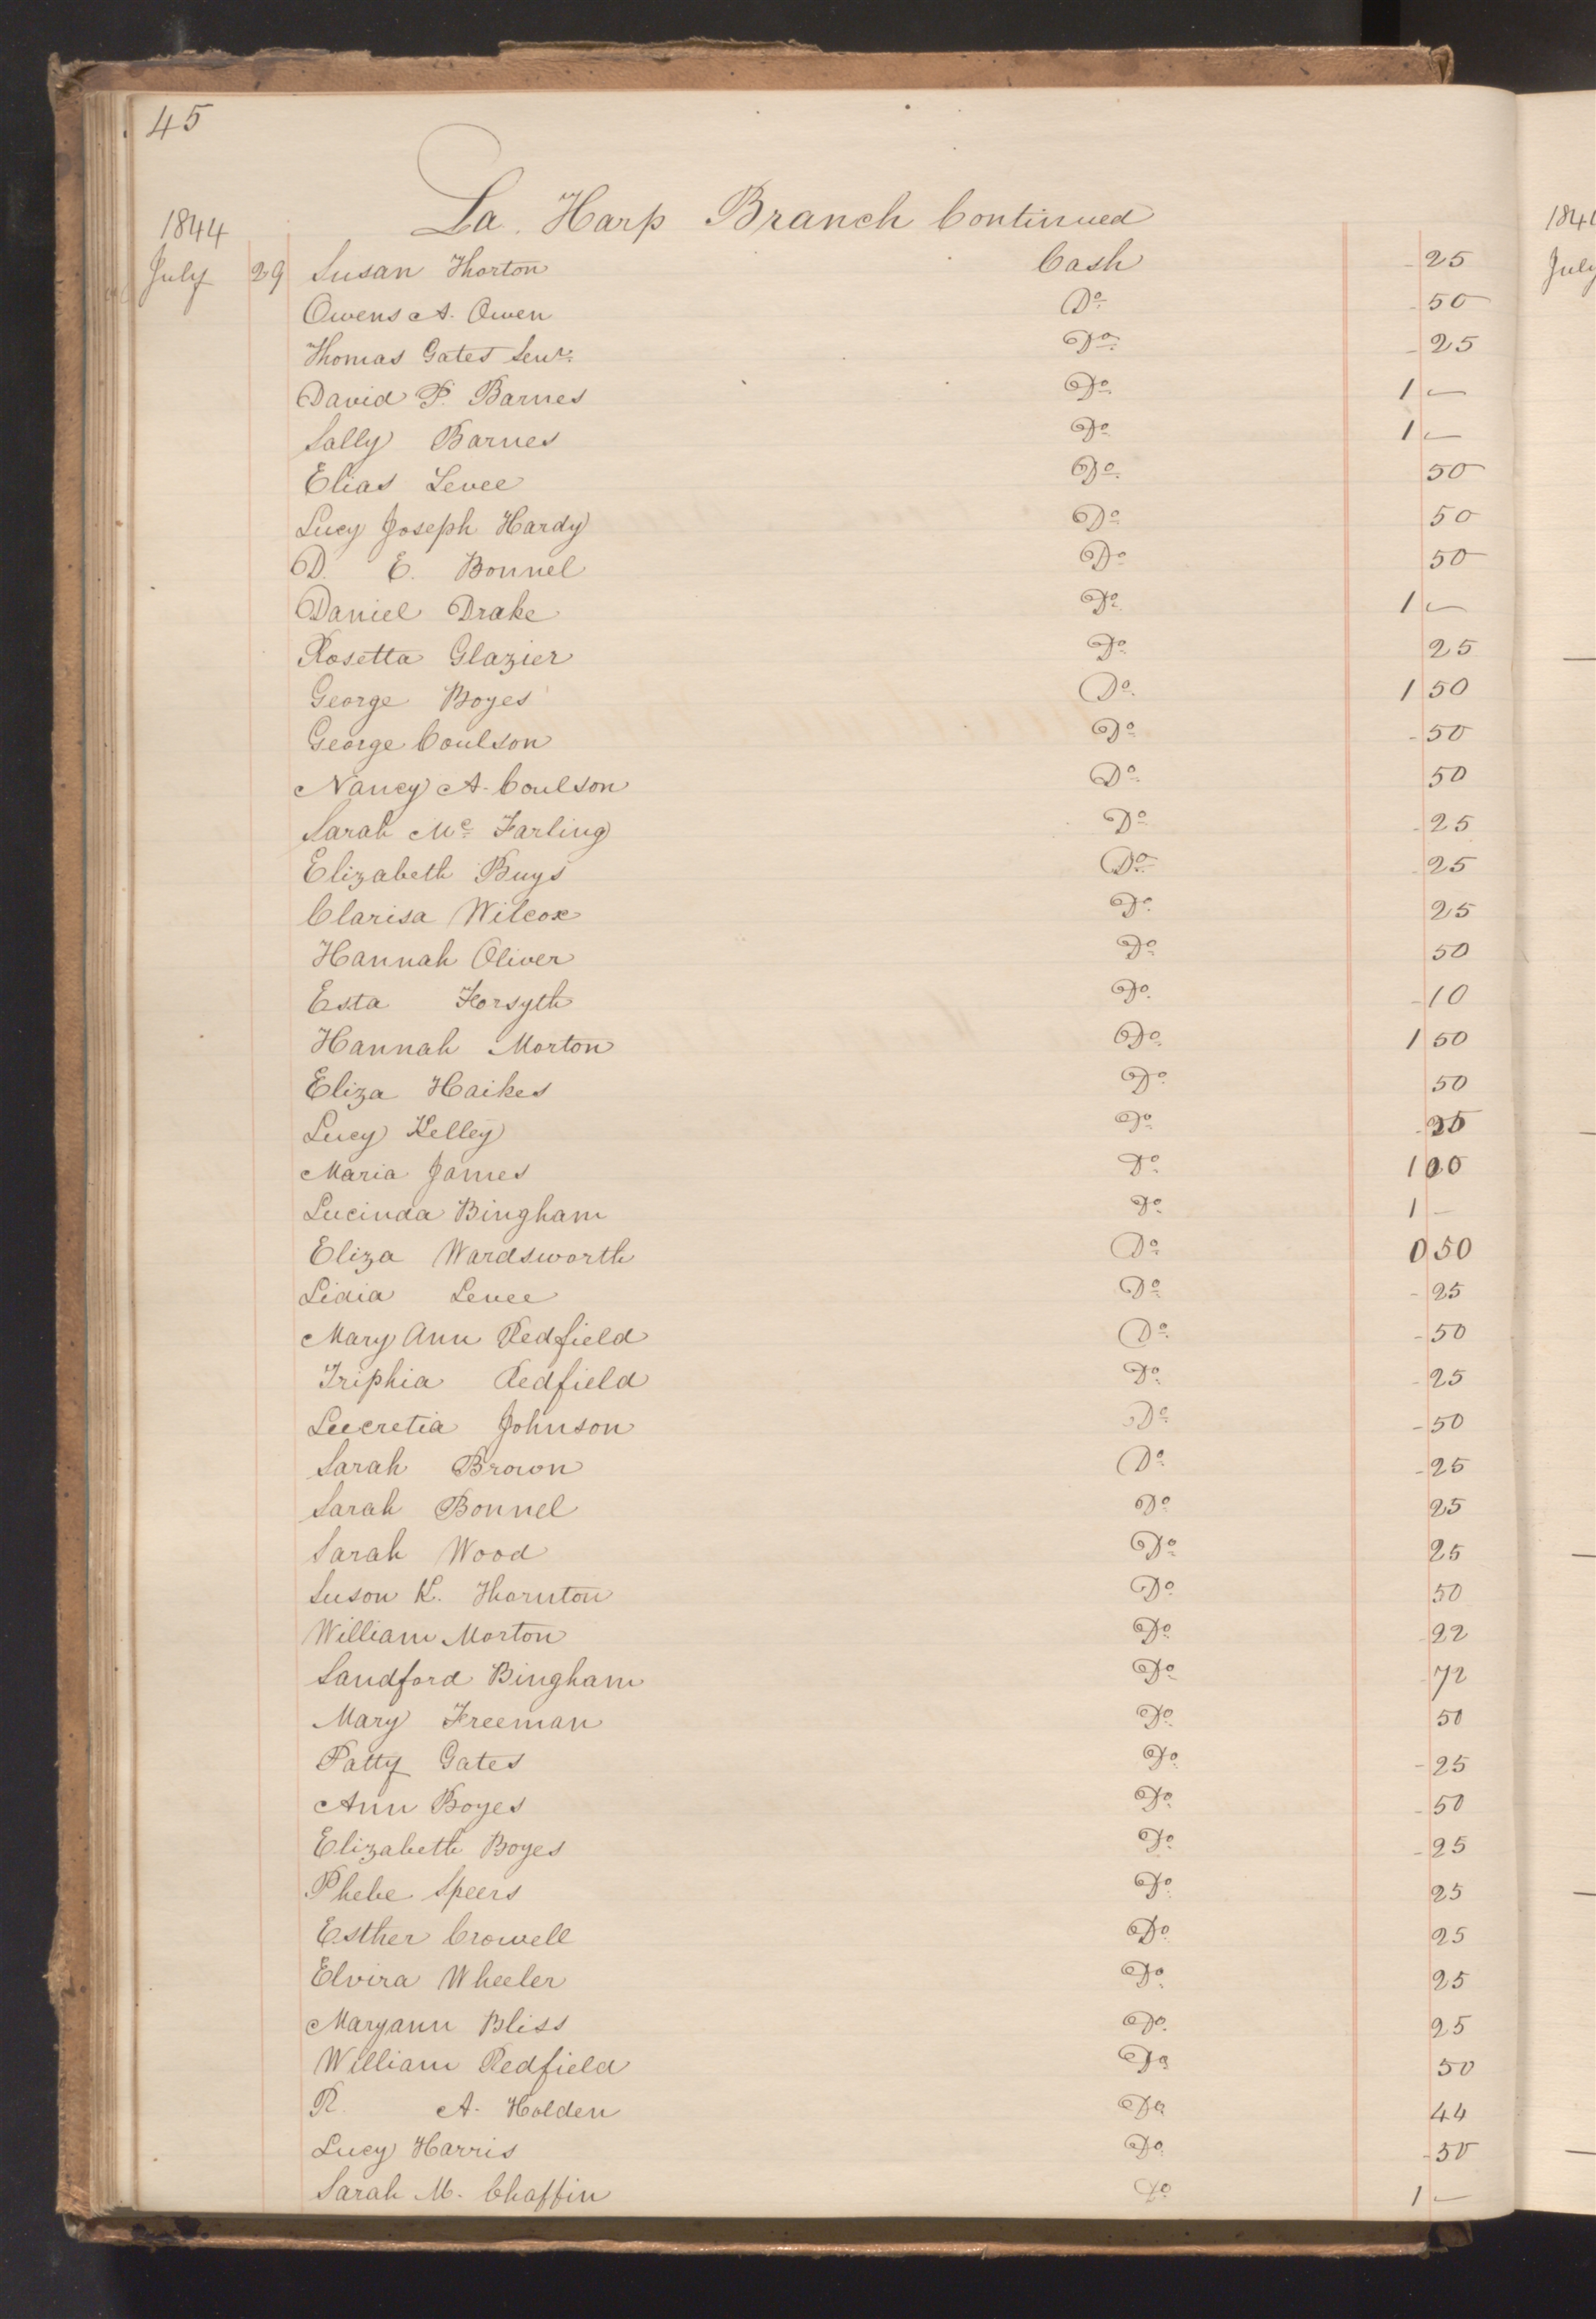 45
La Harp Branch Continued
1844
July 29 Susan Thorton Cash 25
Owens A. Owen Do 50
Thomas Gates Senr. Do 25
David P. Barnes Do 1 —
Sally Barnes Do 1 —
Elias Levee Do 50
Lucy Joseph Hardy Do 50
D. E. Bonnel Do 50
Daniel Drake Do 1 —
Rosetta Glazier Do 25
George Boyes Do 1 50
George Coulson Do 50
Nancy A. Coulson Do 50
Sarah Mc Farling Do 25
Elizabeth Buys Do 25
Clarisa Wilcox Do 25
Hannah Oliver Do 50
Esta Forsyth Do 10
Hannah Morton Do 1 50
Eliza Haikes Do 50
Lucy Kelley Do
Maria James Do 1 00
Lucinda Bingham Do 1 —
Eliza Wardsworth Do 0 50
Lidia Levee Do 25
Mary Ann Redfield Do 50
Triphia Redfield Do 25
Lucretia Johnson Do 50
Sarah Brown Do 25
Sarah Bonnel Do 25
Sarah Wood Do 25
Suson K. Thornton Do 50
William Morton Do 22
Sandford Bingham Do 72
Mary Freeman Do 50
Patty Gates Do 25
Ann Boyes Do 50
Elizabeth Boyes Do 25
Phebe Speers Do 25
Esther Crowell Do 25
Elvira Wheeler Do 25
Maryann Bliss Do 25
William Redfield Do 50
R. A. Holden Do 44
Lucy Harris Do 50
Sarah M. Chaffin Do 1 —
184
July